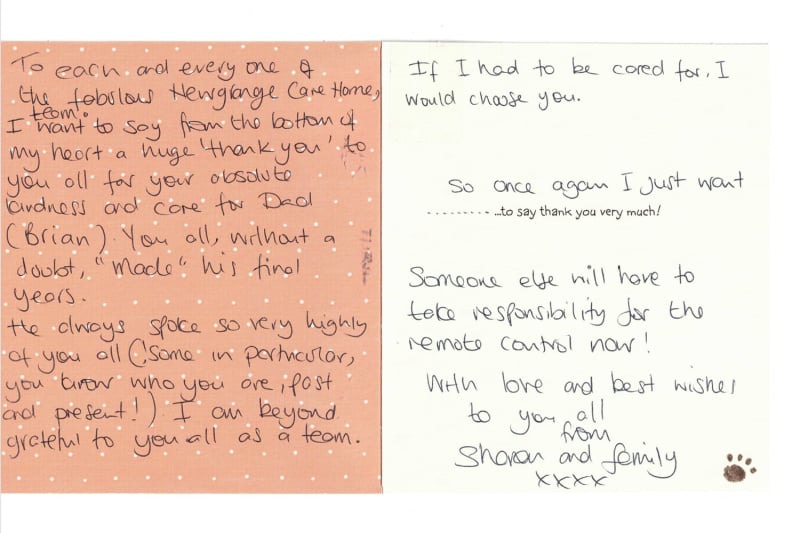 To each and every one of
the fabulous Newgrange Care Home,
team.
I want to say from the bottom of
my heart a huge 'thank you' to
you all for your absolute
kindness and care for Dad
(Brian). You all, without a
doubt, "made" his final
years.
He always spoke so very highly
of you all (some in particular,
you know who you are, past
and present!) I am beyond
grateful to you all as a team.
If I had to be cared for, I
would choose you.
So once again I just want
...to say thank you very much!
Someone else will have to
take responsibility for the
remote control now!
With love and best wishes
to you all
from
Sharon and family
xxxx